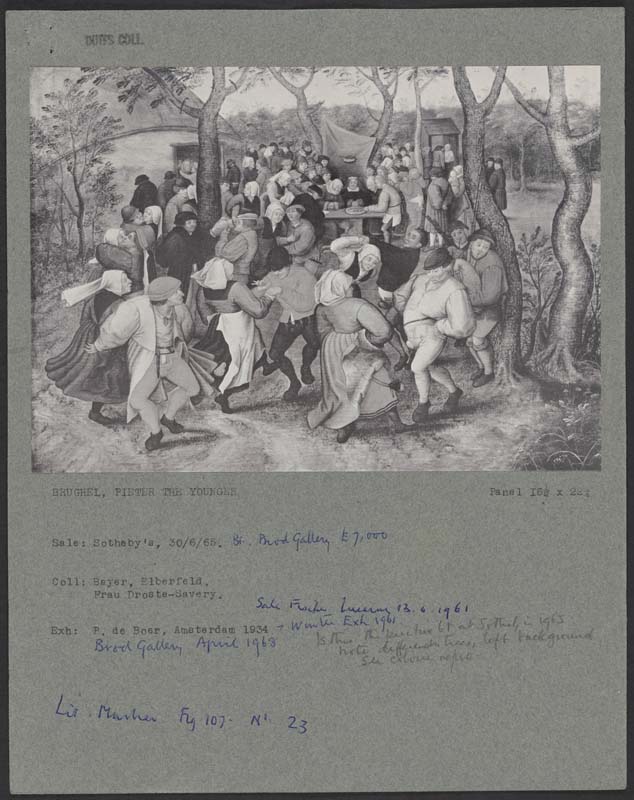 DUITS COLL.
BRUGHEL, PIETER THE YOUNGER
Panel 16½ x 22½
Sale: Sotheby's, 30/6/65. Bt. Brod Gallery £7,000
Coll: Bayer, Elberfeld.
Frau Droste-Savery.
Sale Fischer Lucerne 13.6.1961
Exh: P. de Boer, Amsterdam 1934 + Winter Exh 1961
Brod Gallery April 1963
Is this the picture bt at Sotheby in 1965
note different trees, left background
See colour repro
Lit. Marlier Fig 107. No. 23